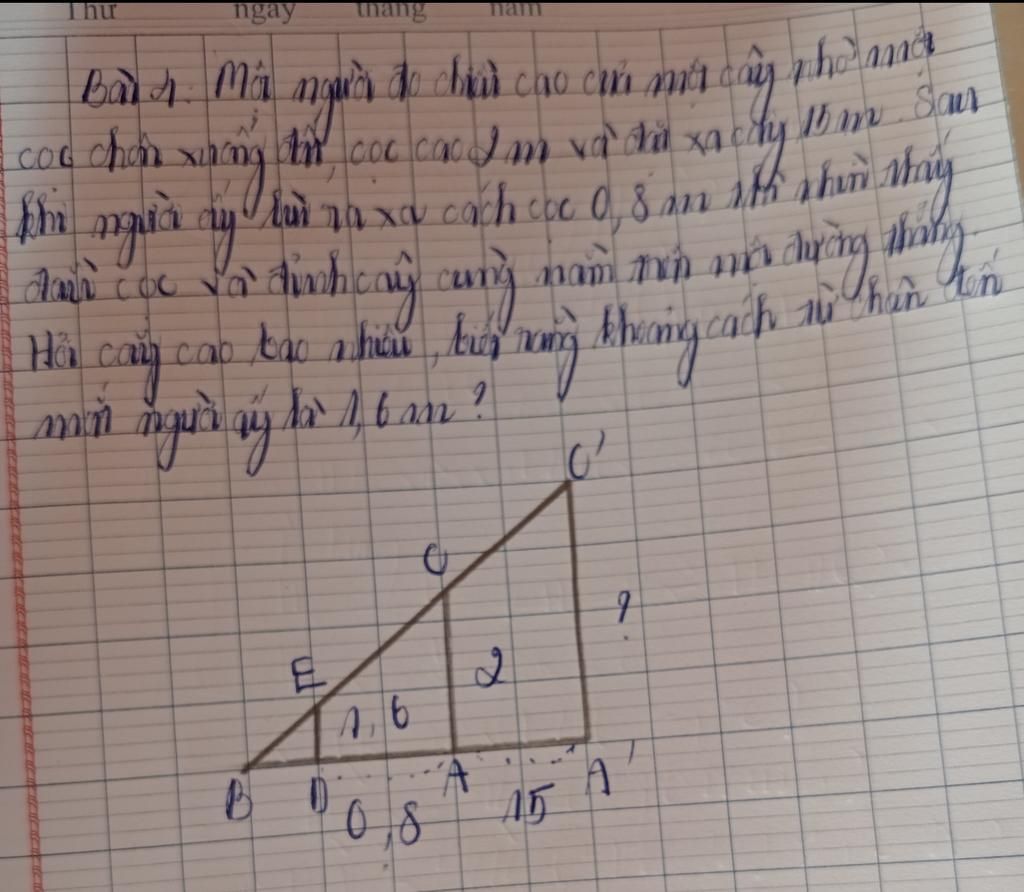 Thứ ngày tháng năm
Bài 4: Một người đo chiều cao của một cây nhờ một
cọc chôn xuống đất, cọc cao 2 m và đặt xa cây 15 m. Sau
khi người ấy lùi ra xa cách cọc 0,8 m thì nhìn thấy
đầu cọc và đỉnh cây cùng nằm trên một đường thẳng.
Hỏi cây cao bao nhiêu, biết rằng khoảng cách từ chân đến
mắt người ấy là 1,6 m ?
C'
C
?
E
2
1,6
B D A A'
0,8 15